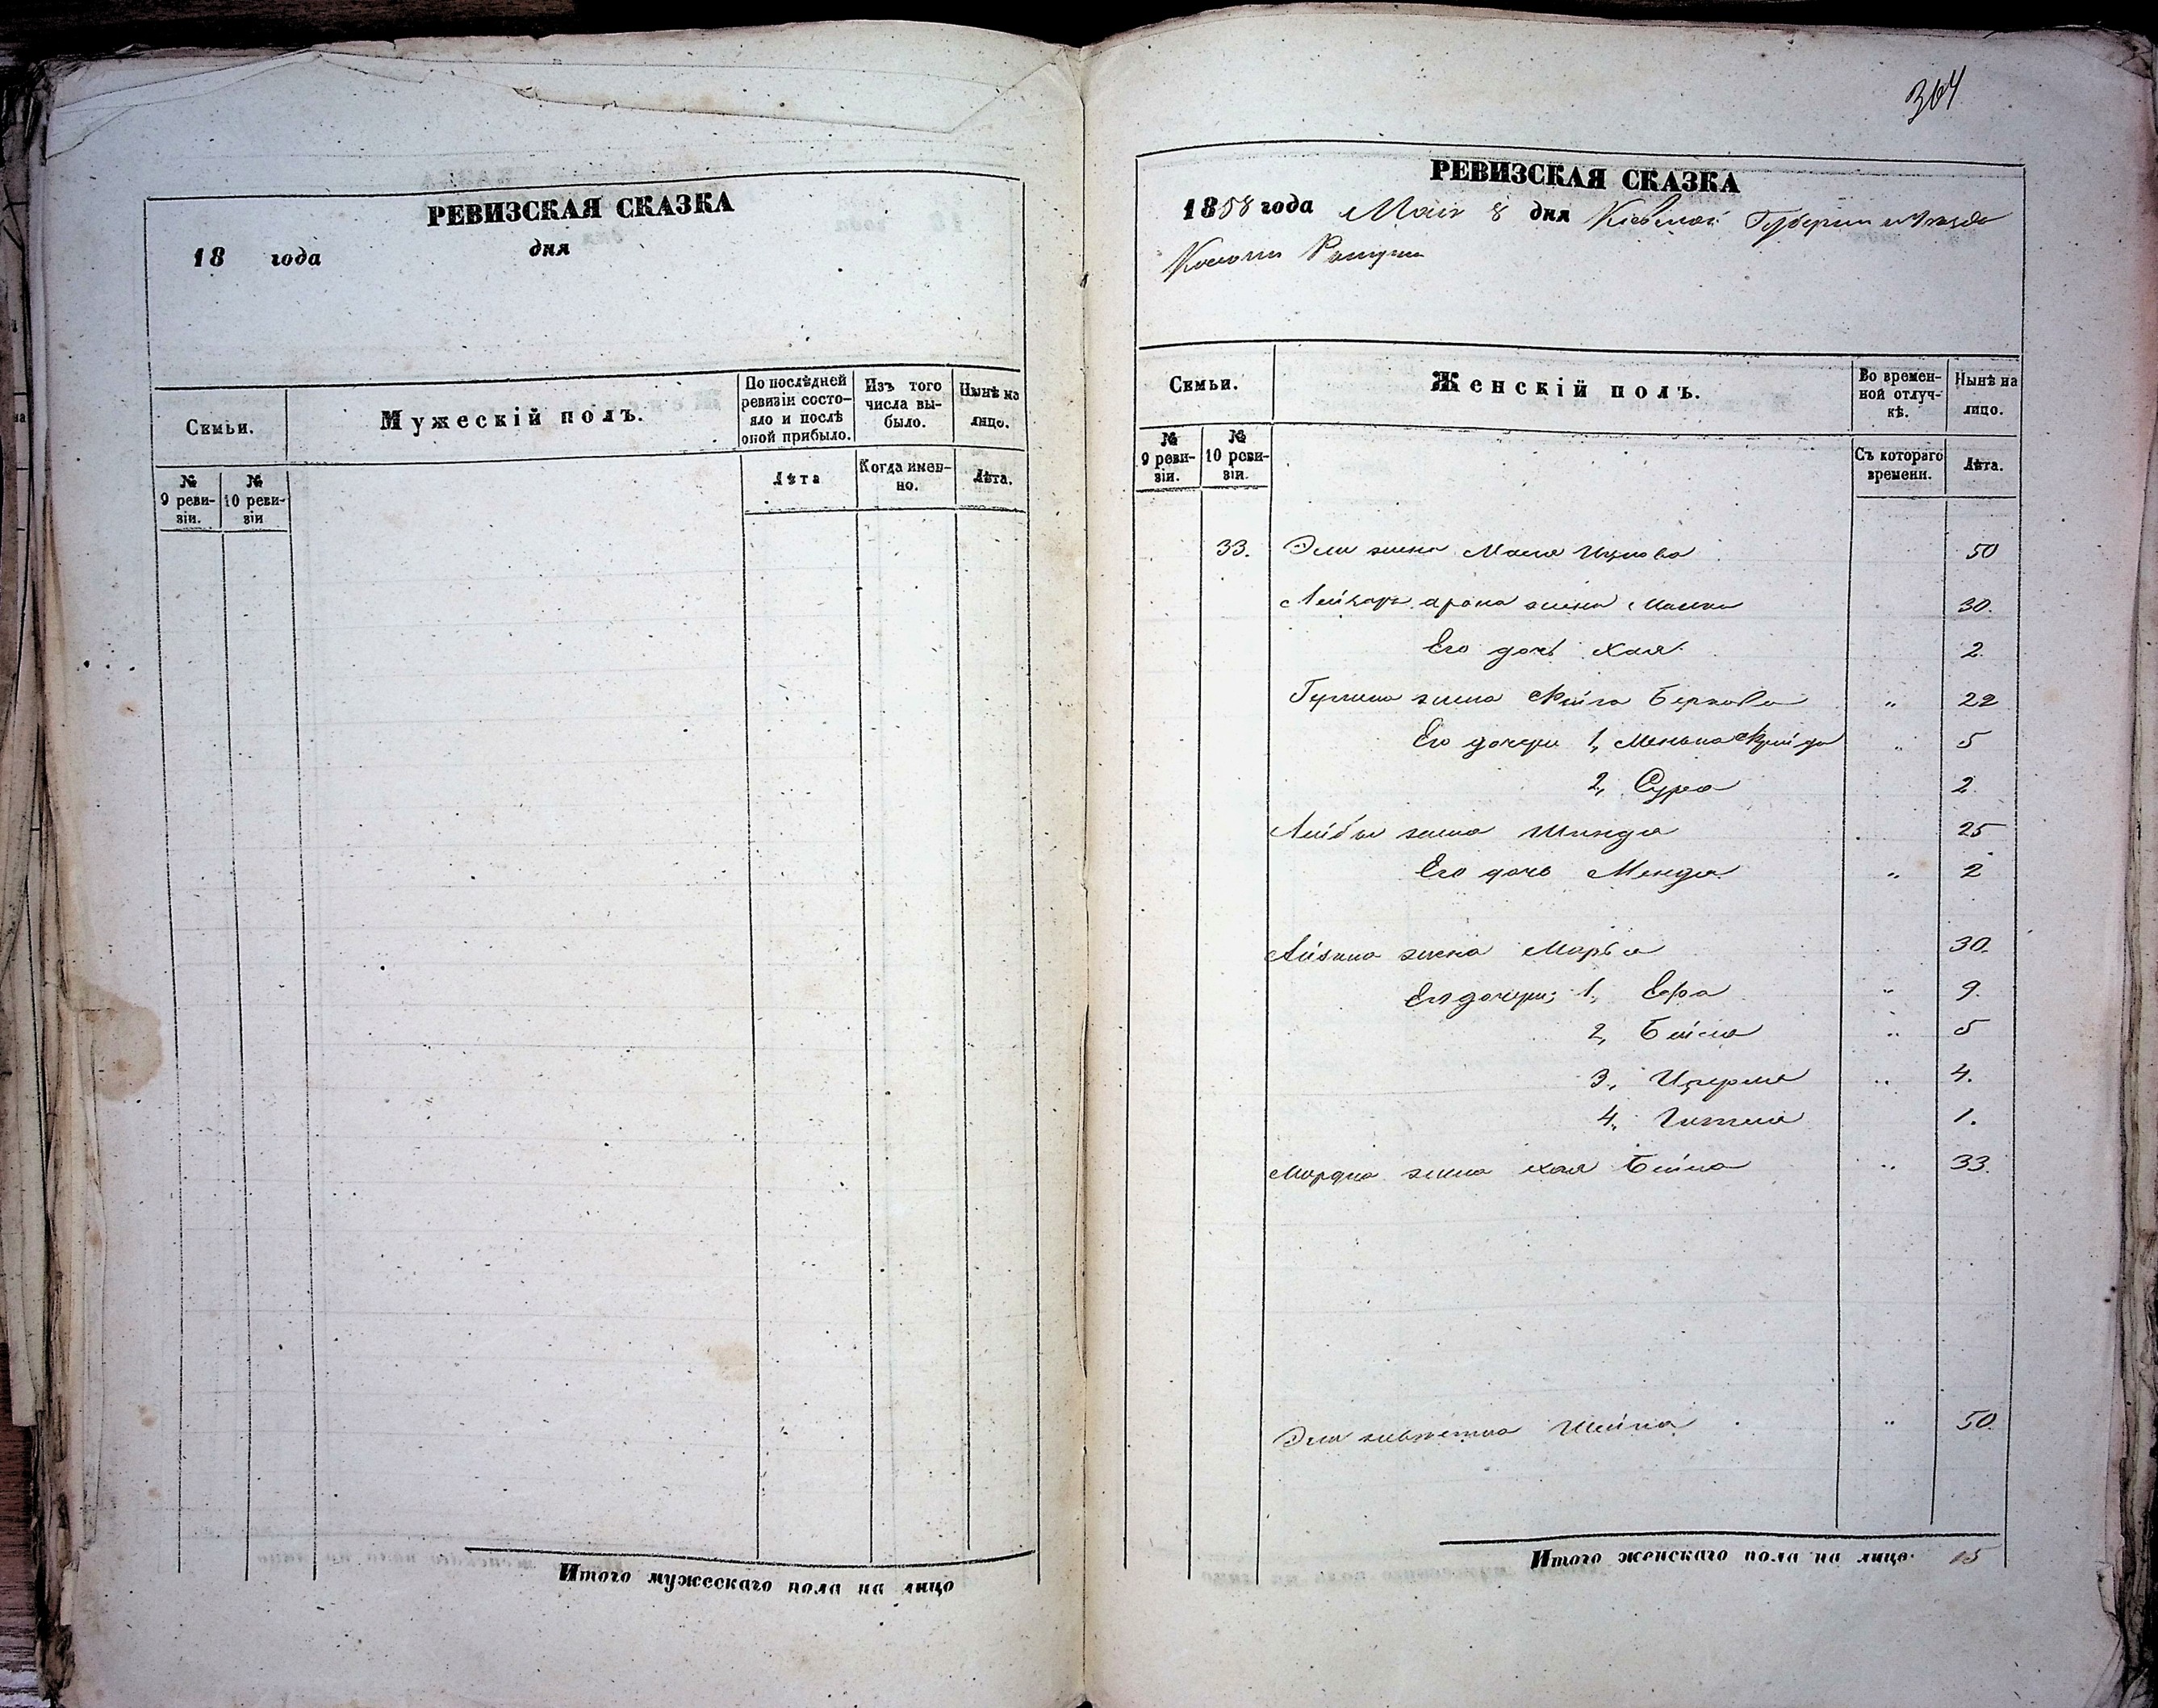 РЕВИЗСКАЯ СКАЗКА
18 года дня
Семьи.
Мужескій полъ.
По послѣдней ревизіи состояло и послѣ оной прибыло.
Изъ того числа выбыло.
Нынѣ на лицо.
№ 9 ревизіи.
№ 10 ревизіи
Лѣта
Когда именно.
Лѣта.
Итого мужескаго пола на лицо
364
РЕВИЗСКАЯ СКАЗКА
1858 года Мая 8 дня Кіевской Губерніи и Уѣзда
Семьи.
Женскій полъ.
Во временной отлучкѣ.
Нынѣ на лицо.
№ 9 ревизіи.
№ 10 ревизіи.
Съ котораго времени.
Лѣта.
33. Эли жена Мася Ицкова 50
Арона жена 30.
Его дочь Хая 2.
жена Фейга Беркова " 22
Его дочери 1, Фрейда " 5
2, Сура 2.
Лейбы жена Шинда 25
Его дочь Менда " 2
жена Марья 30.
Его дочери: 1, " 9.
2, Бейла " 5
3, " 4.
4, Гитля 1.
Мордка жена Хая Бейла " 33.
Эли Шейна " 50.
Итого женскаго пола на лицо. 15